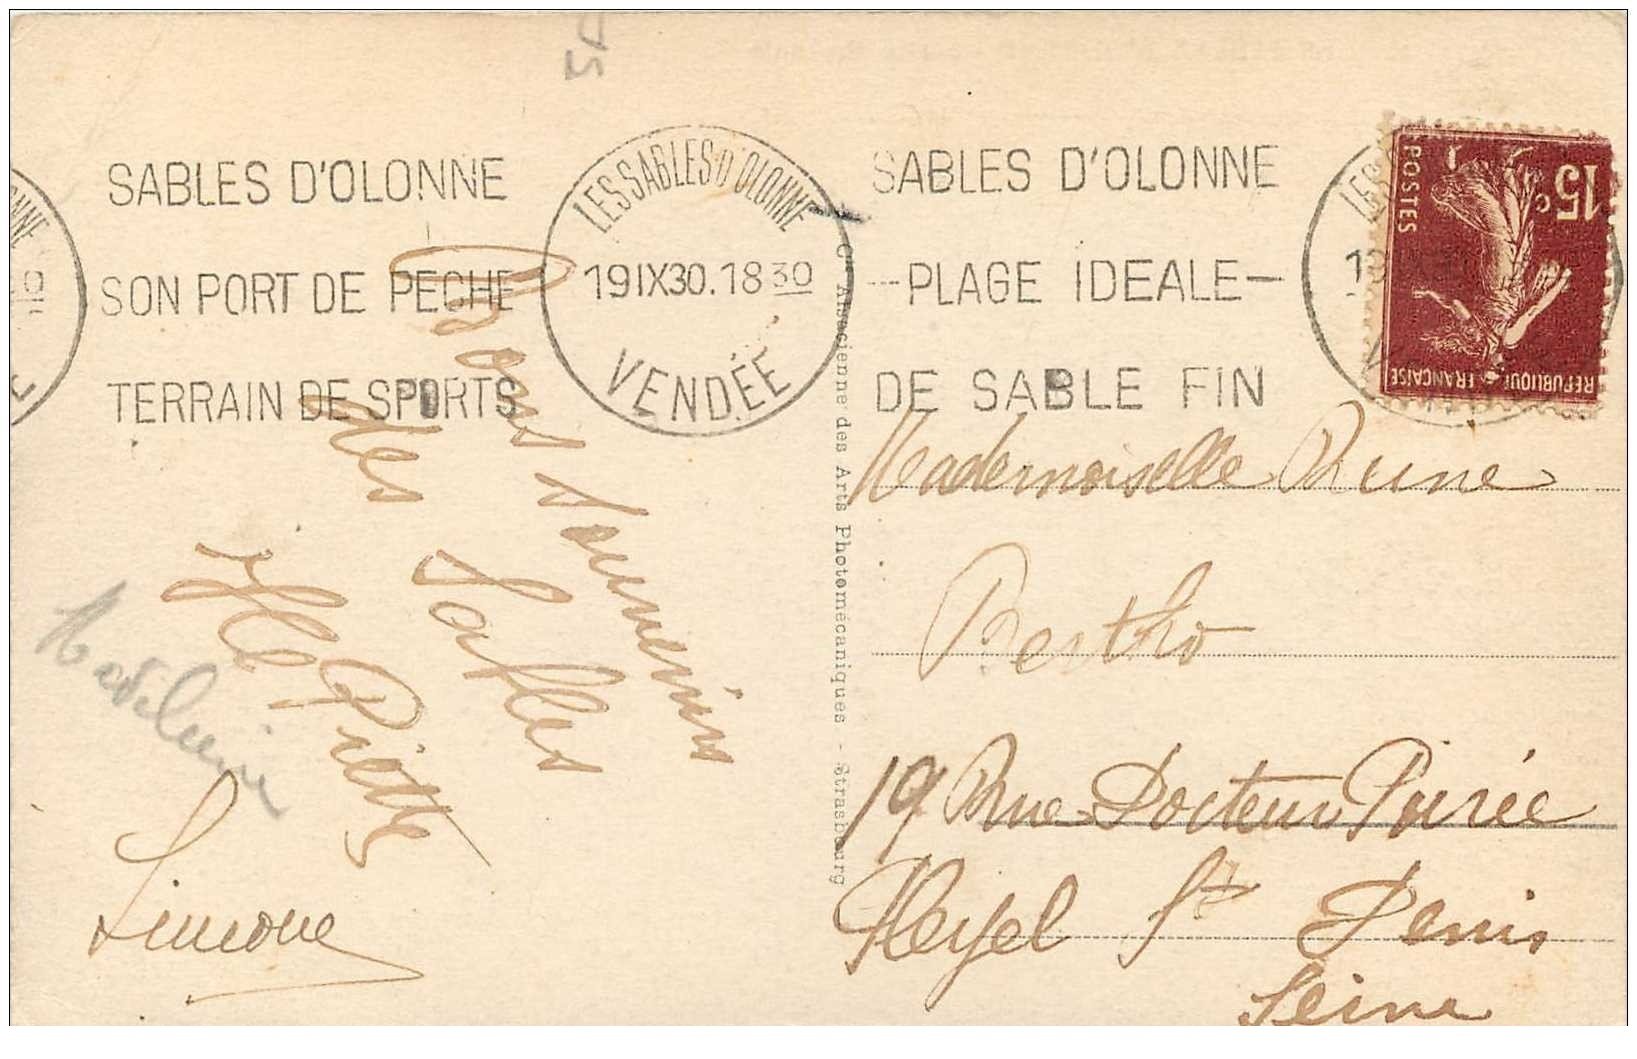 SABLES D'OLONNE
SON PORT DE PECHE
TERRAIN DE SPORTS
LES SABLES D'OLONNE
19 IX 30. 18 30
VENDÉE
SABLES D'OLONNE
—PLAGE IDEALE—
DE SABLE FIN
POSTES
15 c
REPUBLIQUE FRANÇAISE
Cie Alsacienne des Arts Photomécaniques - Strasbourg
Bons souvenirs
des Sables
Piette
Madeleine
Simone
Mademoiselle
Bertho
19 Rue Docteur Poirée
Pleyel St Denis
Seine